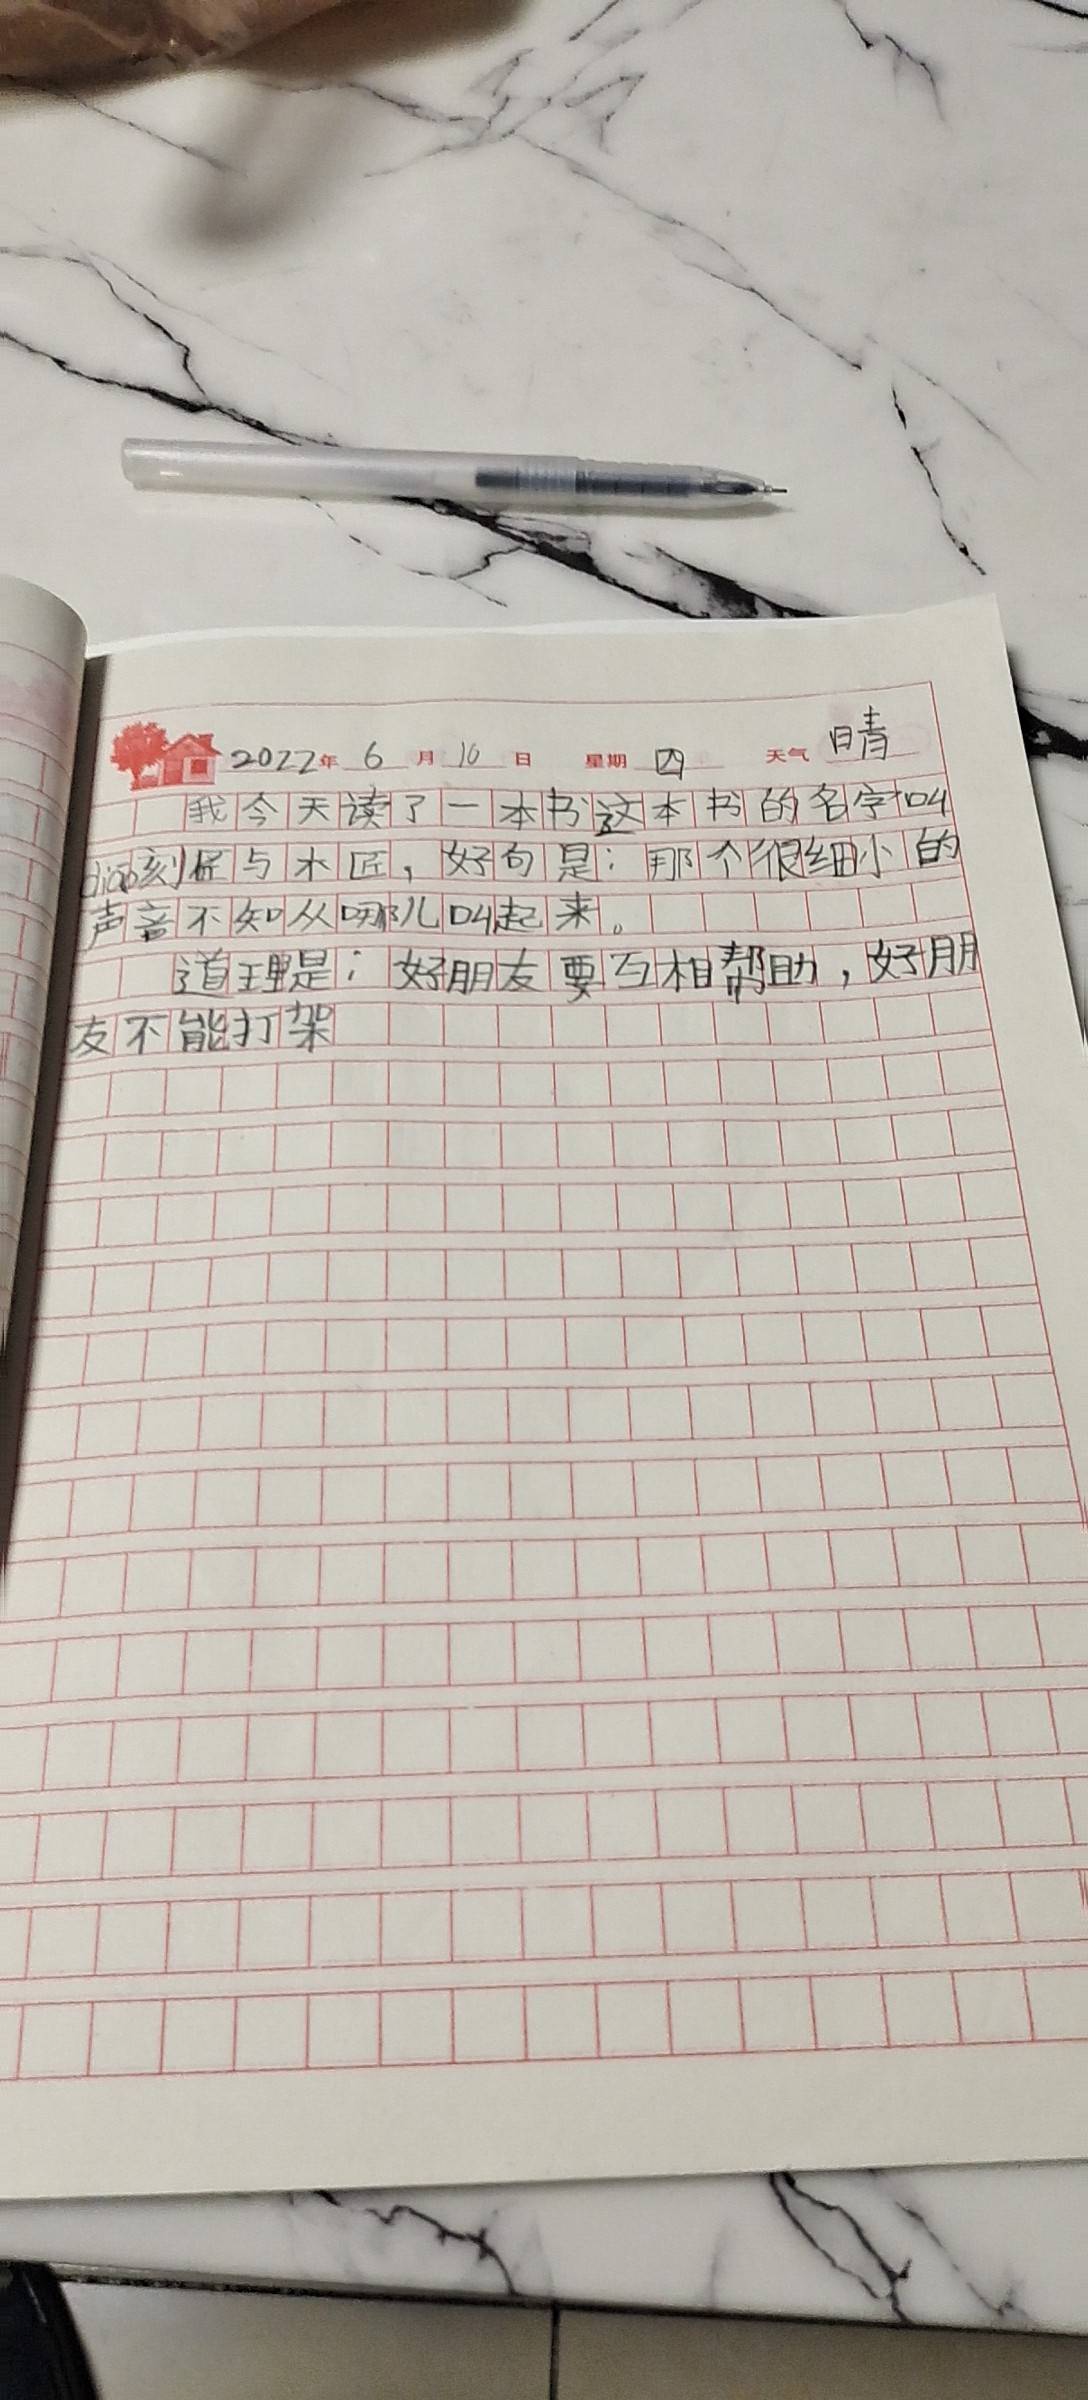 2022年 6 月 10 日 星期 四 天气 晴
我今天读了一本书这本书的名字叫
diao刻匠与木匠，好句是：那个很细小的
声音不知从哪儿叫起来。
道理是：好朋友要互相帮助，好朋
友不能打架